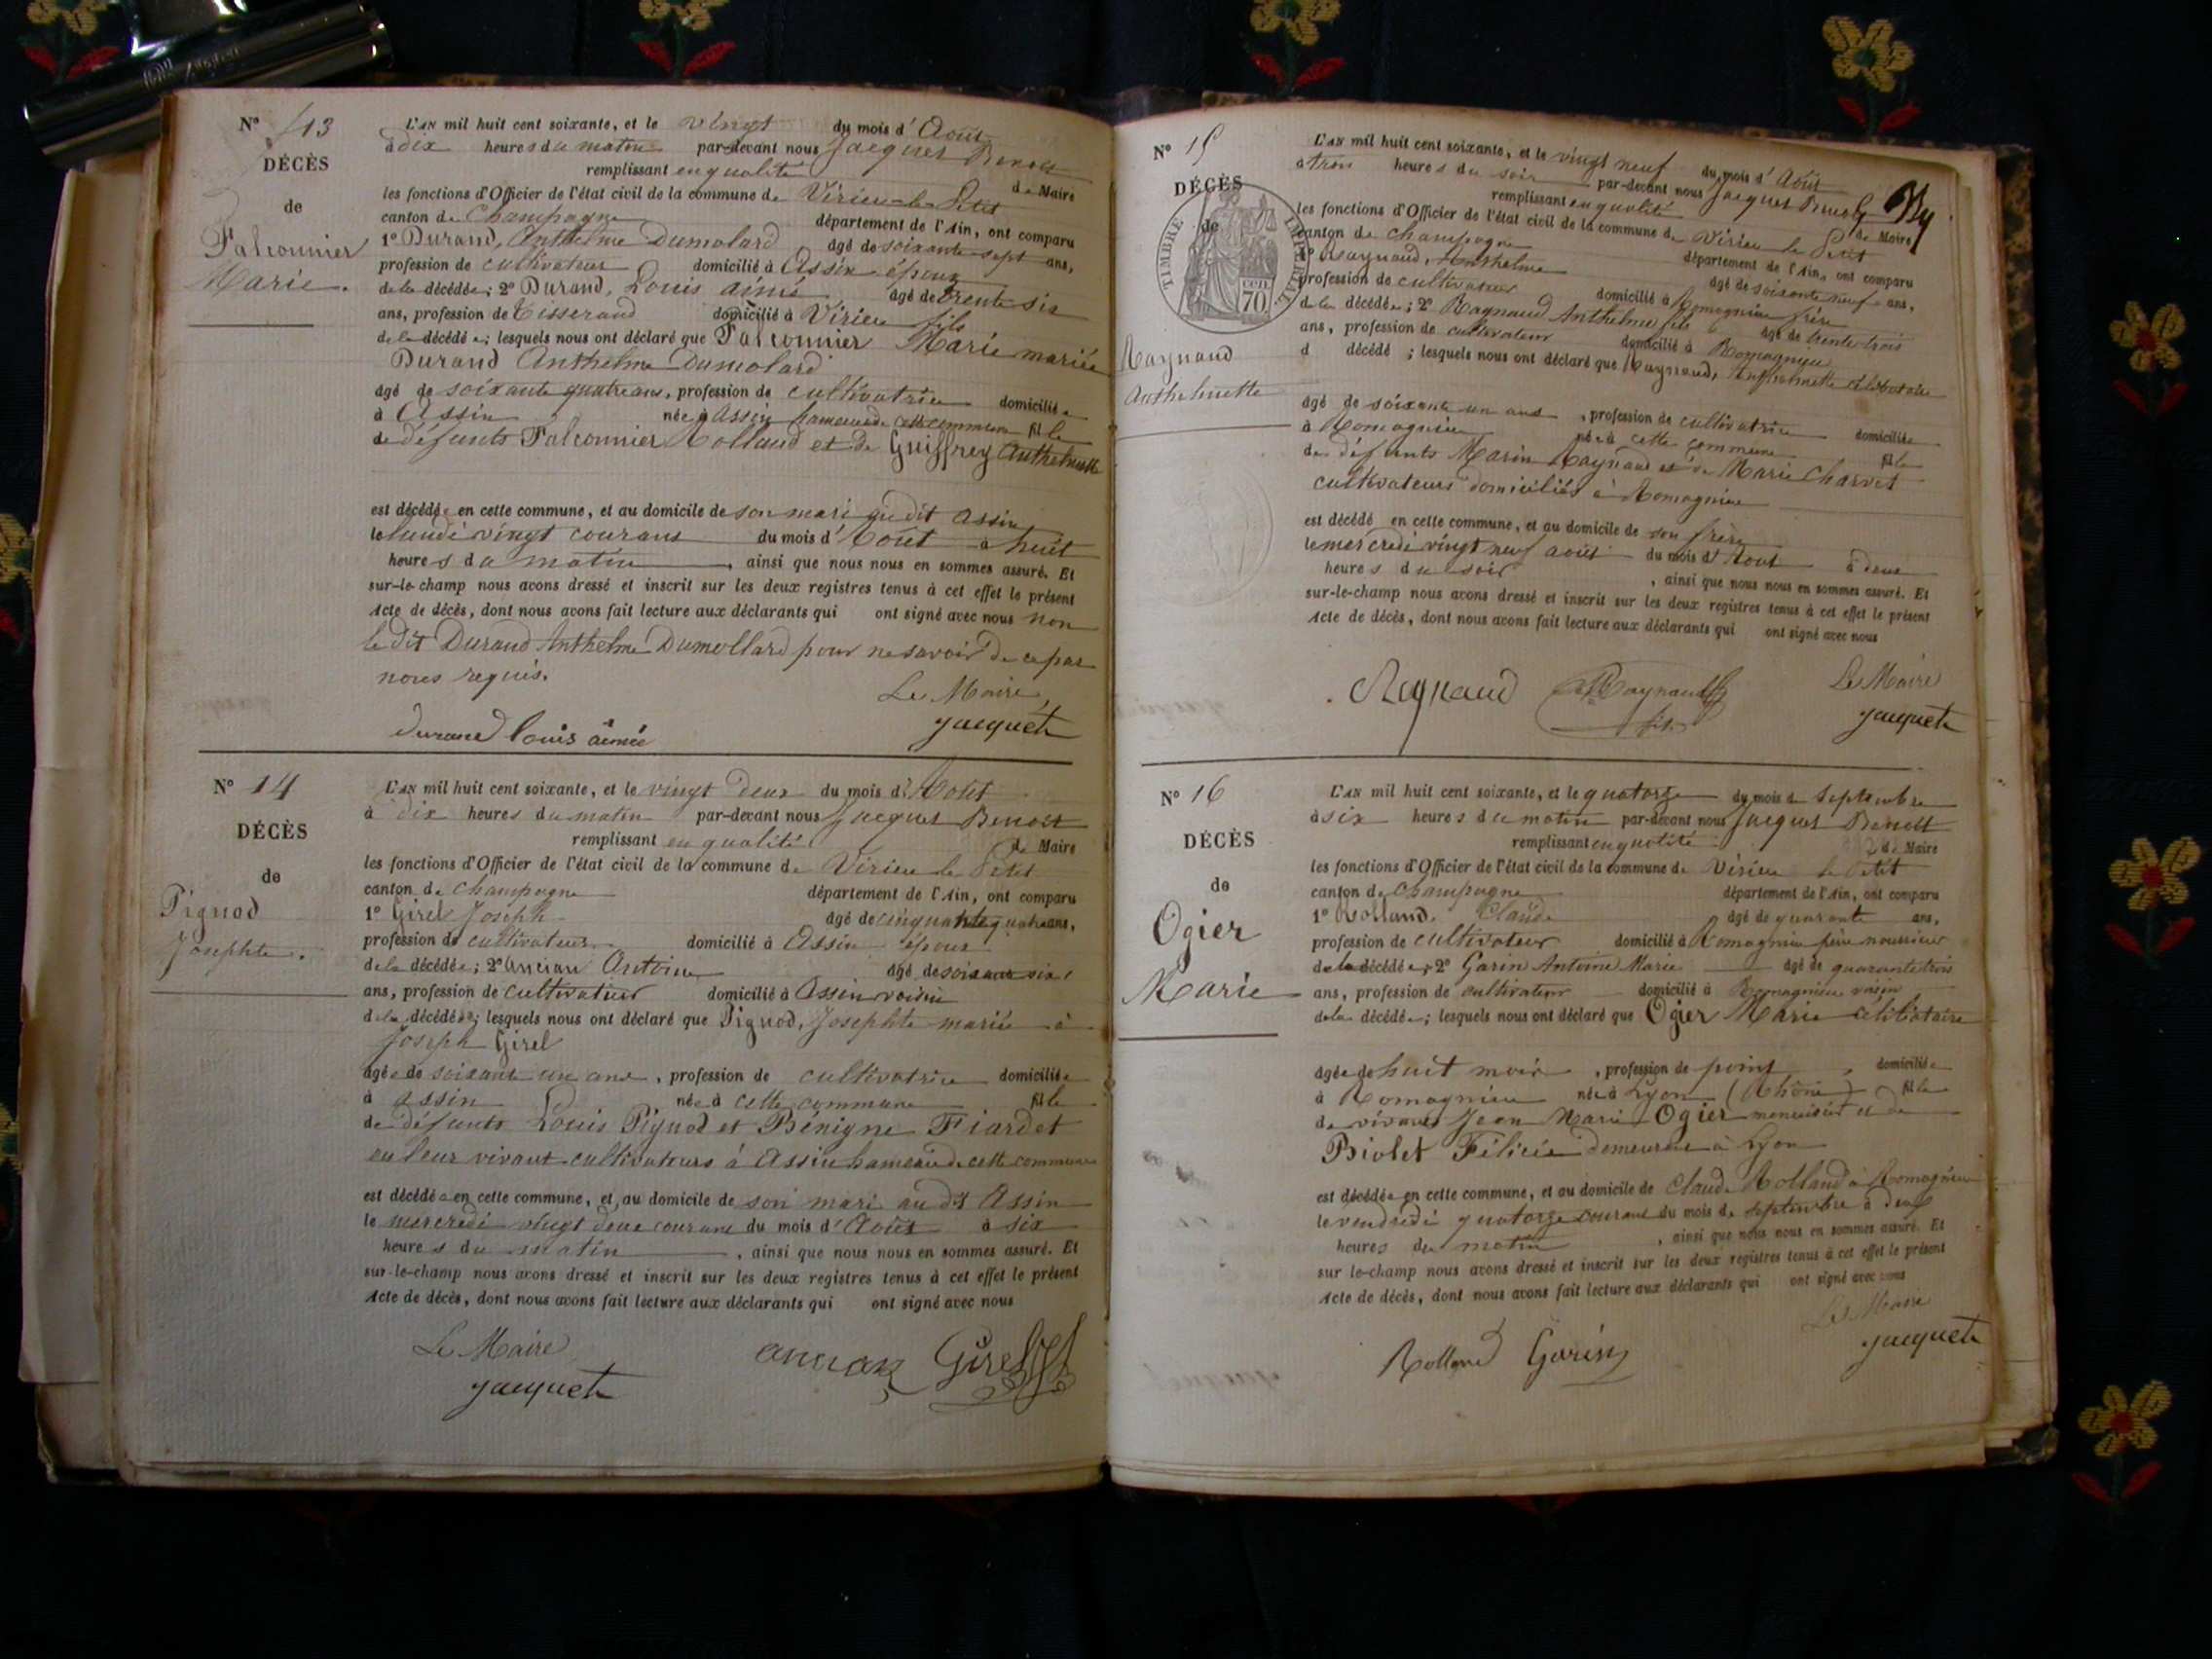 N° 13
DÉCÈS
de
Falconnier
Marie.
L'AN mil huit cent soixante, et le vingt du mois d'Août
à dix heures du matin par-devant nous Jacques Benoit
remplissant en qualité de Maire
les fonctions d'Officier de l'état civil de la commune de Virieu-le-Petit
canton de Champagne département de l'Ain, ont comparu
1° Durand, Anthelme Dumolard âgé de soixante sept ans,
profession de cultivateur domicilié à Assin époux
de la décédée; 2° Durand, Louis aimé âgé de trente six
ans, profession de Tisserand domicilié à Virieu fils
de la décédée; lesquels nous ont déclaré que Falconnier Marie mariée
Durand Anthelme Dumolard
âgé de soixante quatre ans, profession de cultivatrice domiciliée
à Assin née à assin hameau de cette commune fille
de défunts Falconnier Rolland et de Guiffrey Anthelmette
est décédée en cette commune, et au domicile de son mari au dit assin
le lundi vingt courant du mois d'Août à huit
heures du matin, ainsi que nous nous en sommes assuré. Et
sur-le-champ nous avons dressé et inscrit sur les deux registres tenus à cet effet le présent
Acte de décès, dont nous avons fait lecture aux déclarants qui ont signé avec nous non
le dit Durand Anthelme Dumollard pour ne savoir de ce par
nous requis.
Le Maire,
durand louis aimée jacquet
N° 14
DÉCÈS
de
Pignod
Josephte.
L'AN mil huit cent soixante, et le vingt deux du mois d'Août
à dix heures du matin par-devant nous Jacques Benoit
remplissant en qualité de Maire
les fonctions d'Officier de l'état civil de la commune de Virieu le Petit
canton de Champagne département de l'Ain, ont comparu
1° Girel Joseph âgé de cinquante quatre ans,
profession de cultivateur domicilié à Assin époux
de la décédée; 2° Ancian Antoine âgé de soixante six
ans, profession de cultivateur domicilié à Assin voisin
de la décédée; lesquels nous ont déclaré que Pignod, Josephte mariée à
Joseph Girel
âgée de soixante un ans, profession de cultivatrice domiciliée
à assin née à cette commune fille
de défunts Louis Pignod et Bénigne Fiardet
en leur vivant cultivateurs à Assin hameau de cette commune
est décédée en cette commune, et au domicile de son mari au dit Assin
le mercredi vingt deux courant du mois d'Août à six
heures du matin, ainsi que nous nous en sommes assuré. Et
sur-le-champ nous avons dressé et inscrit sur les deux registres tenus à cet effet le présent
Acte de décès, dont nous avons fait lecture aux déclarants qui ont signé avec nous
Le Maire
jacquet ancian Girel
N° 15
DÉCÈS
de
TIMBRE IMPÉRIAL
70 CEN.
Raynaud
Anthelmette
L'AN mil huit cent soixante, et le vingt neuf du mois d'Août
à trois heures du soir par-devant nous Jacques Benoit
remplissant en qualité de Maire
les fonctions d'Officier de l'état civil de la commune de Virieu le Petit
canton de Champagne département de l'Ain, ont comparu
1° Raynaud, Anthelme âgé de soixante neuf ans,
profession de cultivateur domicilié à Romagnieu frère
de la décédée; 2° Raynaud Anthelme fils âgé de trente trois
ans, profession de cultivateur domicilié à Romagnieu
d décédé; lesquels nous ont déclaré que Raynaud, Anthelmette célibataire
âgé de soixante un ans, profession de cultivatrice domiciliée
à Romagnieu née à cette commune fille
de défunts Marin Raynaud et de Marie Charvet
cultivateurs domiciliés à Romagnieu
est décédé en cette commune, et au domicile de son frère
le mercredi vingt neuf août du mois d'Août à deux
heures du soir, ainsi que nous nous en sommes assuré. Et
sur-le-champ nous avons dressé et inscrit sur les deux registres tenus à cet effet le présent
Acte de décès, dont nous avons fait lecture aux déclarants qui ont signé avec nous
Raynaud Raynaud fils
Le Maire
jacquet
N° 16
DÉCÈS
de
Ogier
Marie
L'AN mil huit cent soixante, et le quatorze du mois de Septembre
à six heures du matin par-devant nous Jacques Benoit
remplissant en qualité de Maire
les fonctions d'Officier de l'état civil de la commune de Virieu le Petit
canton de Champagne département de l'Ain, ont comparu
1° Rolland. Claude âgé de quarante ans,
profession de cultivateur domicilié à Romagnieu père nourricier
de la décédée; 2° Garin Antoine Marie âgé de quarante trois
ans, profession de cultivateur domicilié à Romagnieu voisin
de la décédée; lesquels nous ont déclaré que Ogier Marie célibataire
âgée de huit mois, profession de point, domiciliée
à Romagnieu née à Lyon (Rhône) fille
de vivants Jean Marie Ogier menuisier et de
Biolet Félicie demeurant à Lyon
est décédée en cette commune, et au domicile de Claude Rolland à Romagnieu
le vendredi quatorze courant du mois de septembre à deux
heures du matin, ainsi que nous nous en sommes assuré. Et
sur le-champ nous avons dressé et inscrit sur les deux registres tenus à cet effet le présent
Acte de décès, dont nous avons fait lecture aux déclarants qui ont signé avec nous
Le Maire
Rolland Garin jacquet